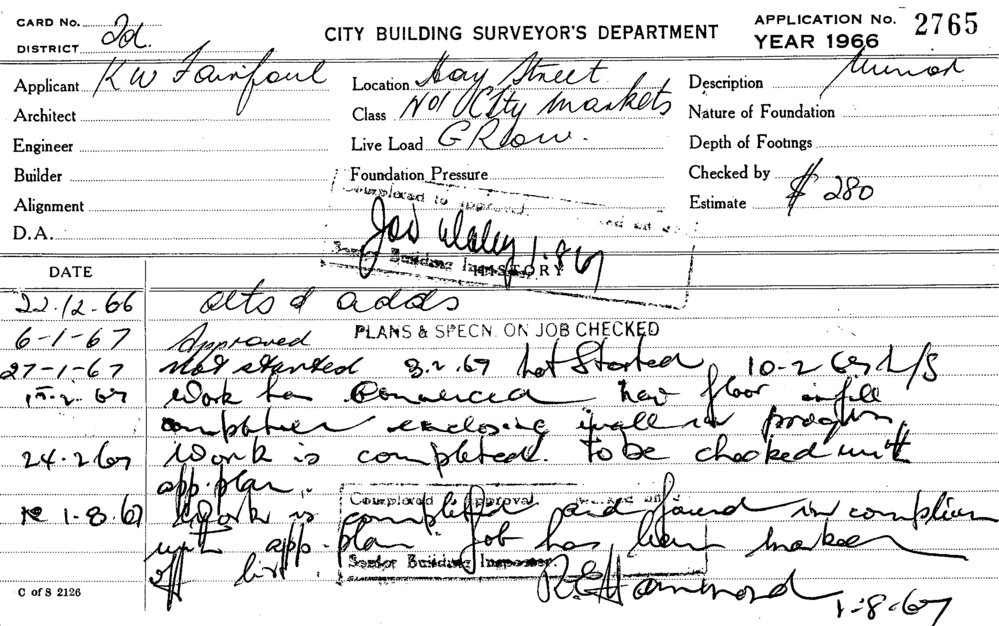 CARD No. 2d. CITY BUILDING SURVEYOR'S DEPARTMENT APPLICATION No. 2765
DISTRICT YEAR 1966
Applicant KW Fairfoul Location Hay Street Description Minor
Architect Class No1 City Markets Nature of Foundation
Engineer Live Load GR low. Depth of Footings
Builder Foundation Pressure Checked by
Completed to approval.
Alignment Estimate $ 280
D.A. 1.8.67
Senior Building Inspector
HISTORY
DATE
22.12.66 alts & adds
PLANS & SPECN. ON JOB CHECKED
6-1-67 Approved
27-1-67 Not started 3.2.67 Not Started 10-2 67 N/S
2. 67 Work has Commenced new floor infill
enclosing wall in progress
24.2.67 Work is completed. to be checked with
app. plan.
Completed approval
1-8.67 Work is completed and found in complian
with app. plan Job has been marked
off list.
Senior Building Inspector.
R.E. Hammond
1-8-67
C of S 2126